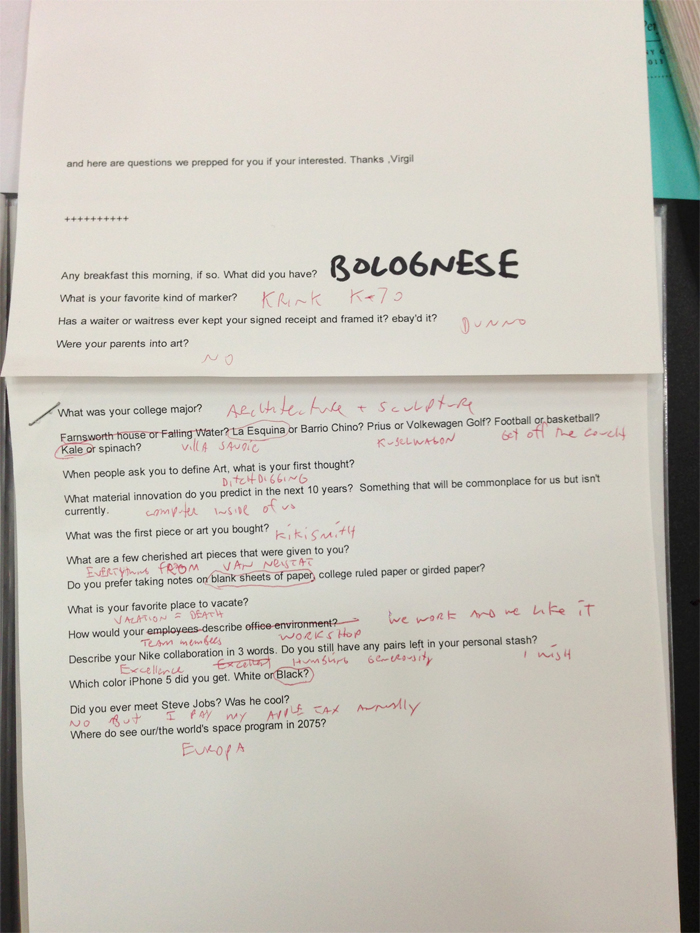 and here are questions we prepped for you if your interested. Thanks ,Virgil
++++++++++
Any breakfast this morning, if so. What did you have? BOLOGNESE
What is your favorite kind of marker? KRINK K-70
Has a waiter or waitress ever kept your signed receipt and framed it? ebay'd it? DUNNO
Were your parents into art?
NO
What was your college major? Architecture + Sculpture
Farnsworth house or Falling Water? La Esquina or Barrio Chino? Prius or Volkewagen Golf? Football or basketball?
Kale or spinach? VILLA SAVOIE
GET OFF THE COUCH
When people ask you to define Art, what is your first thought?
DITCH DIGGING
What material innovation do you predict in the next 10 years? Something that will be commonplace for us but isn't
currently. computer INSIDE OF US
What was the first piece or art you bought? kiki smith
What are a few cherished art pieces that were given to you?
EVERYTHING FROM VAN NEISTAT
Do you prefer taking notes on blank sheets of paper, college ruled paper or girded paper?
What is your favorite place to vacate?
VACATION = DEATH
How would your employees describe office environment? WE WORK AND WE LIKE IT
TEAM members WORKSHOP
Describe your Nike collaboration in 3 words. Do you still have any pairs left in your personal stash?
Excellence Excellent Humbling Generosity I WISH
Which color iPhone 5 did you get. White or Black?
Did you ever meet Steve Jobs? Was he cool?
NO BUT I PAY MY APPLE TAX ANNUALLY
Where do see our/the world's space program in 2075?
EUROPA